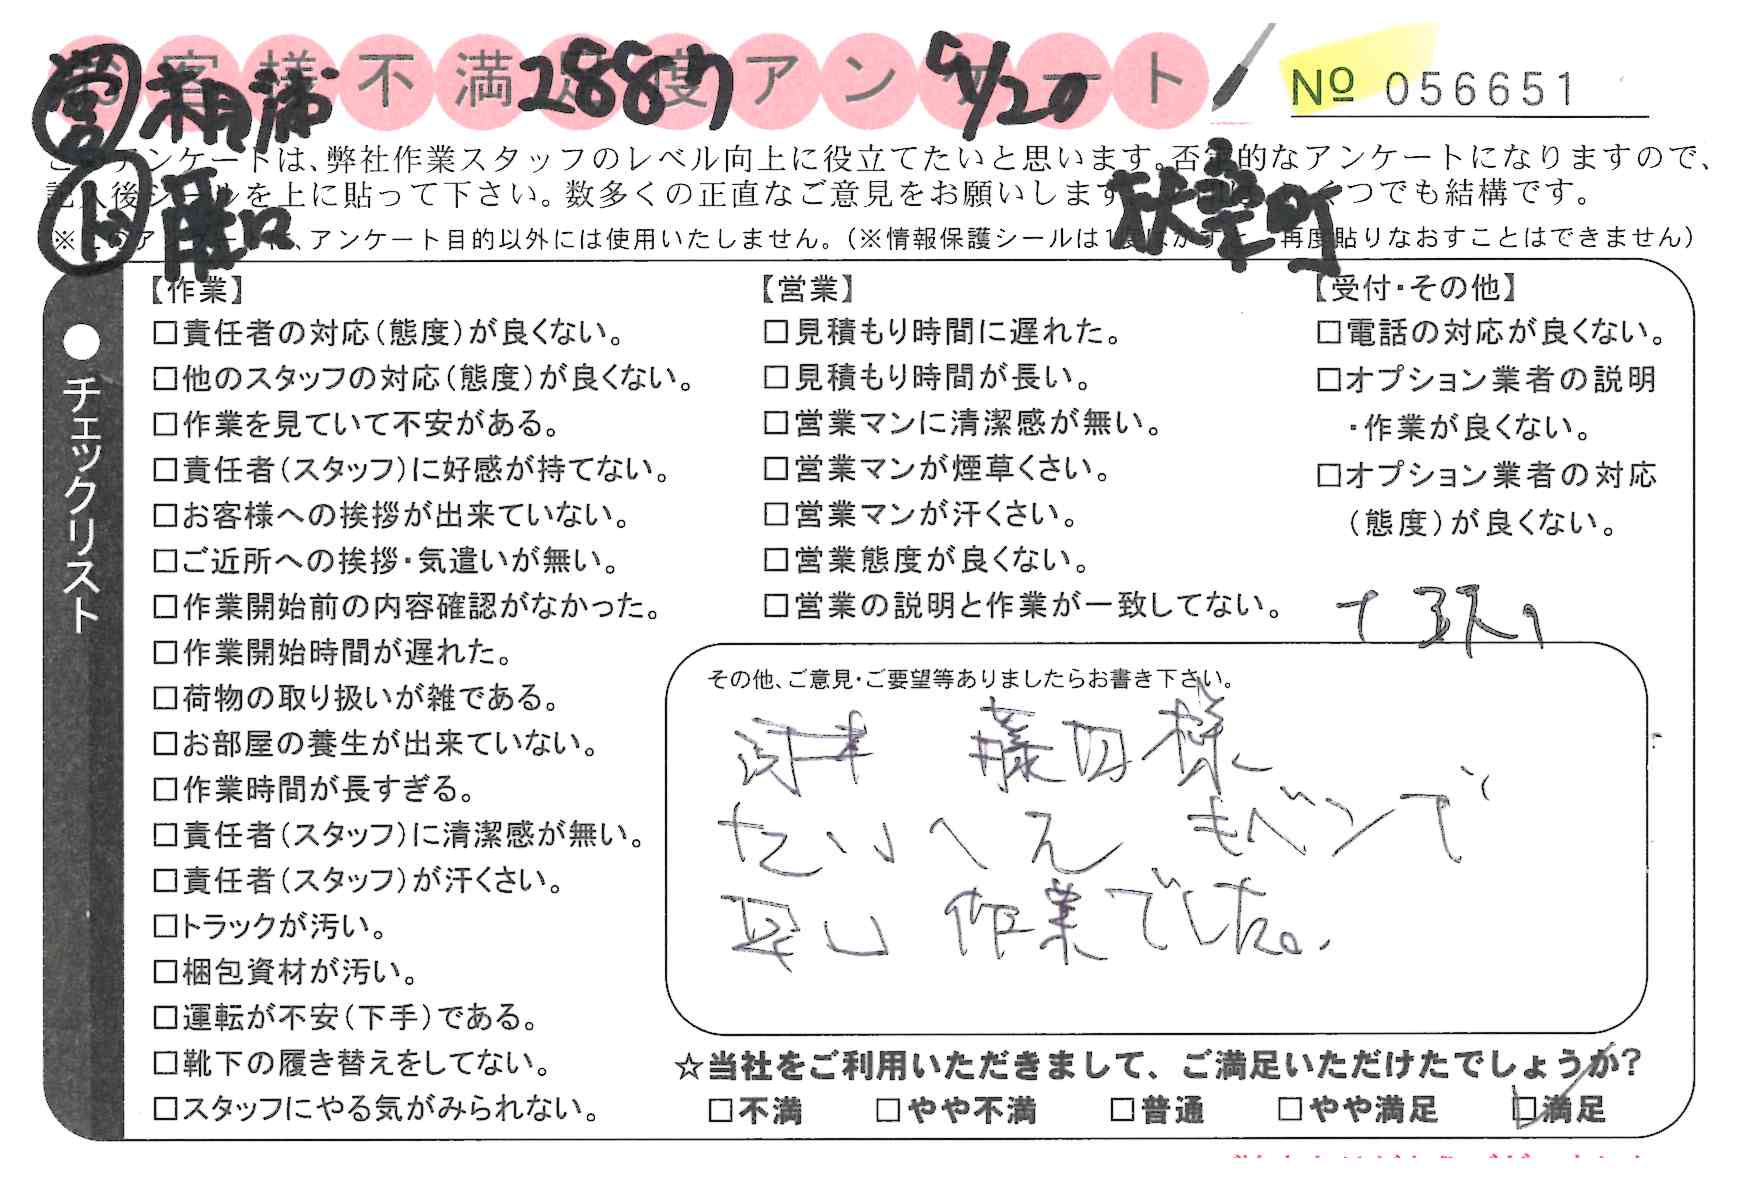 お客様不満足度アンケート
2887
9/20
Nº 056651
このアンケートは、弊社作業スタッフのレベル向上に役立てたいと思います。否定的なアンケートになりますので、
記入後シールを上に貼って下さい。数多くの正直なご意見をお願いします くつでも結構です。
※このアンケートは、アンケート目的以外には使用いたしません。（※情報保護シールは1度はがすと、再度貼りなおすことはできません）
営
ト
●チェックリスト
【作業】
□責任者の対応（態度）が良くない。
□他のスタッフの対応（態度）が良くない。
□作業を見ていて不安がある。
□責任者（スタッフ）に好感が持てない。
□お客様への挨拶が出来ていない。
□ご近所への挨拶・気遣いが無い。
□作業開始前の内容確認がなかった。
□作業開始時間が遅れた。
□荷物の取り扱いが雑である。
□お部屋の養生が出来ていない。
□作業時間が長すぎる。
□責任者（スタッフ）に清潔感が無い。
□責任者（スタッフ）が汗くさい。
□トラックが汚い。
□梱包資材が汚い。
□運転が不安（下手）である。
□靴下の履き替えをしてない。
□スタッフにやる気がみられない。
【営業】
□見積もり時間に遅れた。
□見積もり時間が長い。
□営業マンに清潔感が無い。
□営業マンが煙草くさい。
□営業マンが汗くさい。
□営業態度が良くない。
□営業の説明と作業が一致してない。
【受付・その他】
□電話の対応が良くない。
□オプション業者の説明
・作業が良くない。
□オプション業者の対応
（態度）が良くない。
その他、ご意見・ご要望等ありましたらお書き下さい。
藤田様
作業でした。
☆当社をご利用いただきまして、ご満足いただけたでしょうか?
□不満 □やや不満 □普通 □やや満足 □満足